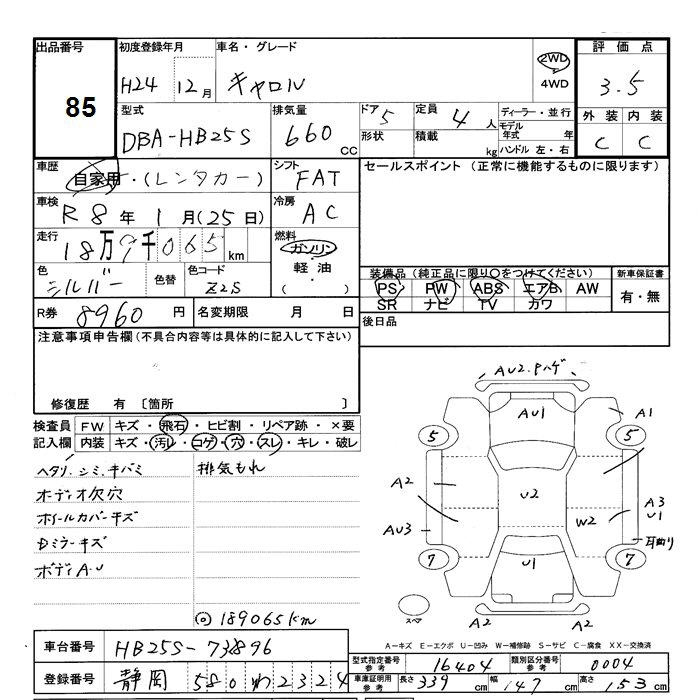 出品番号 初度登録年月 車名・グレード 評価点
85 H24 12月 キャロル 2WD 3.5
4WD
型式 排気量 ドア 定員 ディーラー・並行 外装 内装
DBA-HB25S 660 CC 5 4人 モデル年式 年 C C
形状 積載 kg ハンドル 左・右
車歴 自家用・(レンタカー) シフト FAT セールスポイント(正常に機能するものに限ります)
車検 R8年1月(25日) 冷房 AC
走行 18万9千065km 燃料 ガソリン・
軽油・
( )
色 シルバー 色替 色コード Z2S
装備品(純正品に限り○をつけてください) 新車保証書
PS PW ABS エアB AW 有・無
SR ナビ TV カワ
R券 8960円 名変期限 月 日 後日品
注意事項申告欄(不具合内容等は具体的に記入して下さい)
修復歴 有 〔箇所 〕
検査員 FW キズ・飛石・ヒビ割・リペア跡・×要
記入欄 内装 キズ・汚レ・コゲ・穴・スレ・キレ・破レ
ヘタリ、シミ、キバミ 排気もれ
オーディオ欠穴
ホイールカバーキズ
Dミラーキズ
ボディA・U
◎189065km
AU2.Pハゲ
AU1 A1
5 5
A2 U2 A3
U1
AU3 W2
7 U1 7
スペア A2 A2
A-キズ E-エクボ U-凹み W-補修跡 S-サビ C-腐食 XX-交換済
車台番号 HB25S-73896
型式指定番号 参考 16404 類別区分番号 参考 0004
登録番号 静岡 580 わ 2324
車庫証明用 参考 長さ 339cm 幅 147cm 高さ 153cm